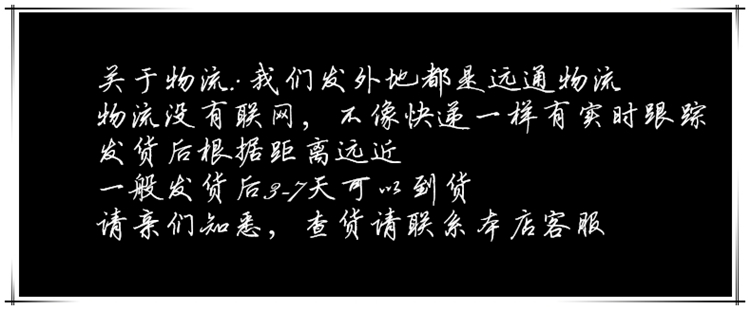 关于物流:我们发外地都是远通物流
物流没有联网，不像快递一样有实时跟踪
发货后根据距离远近
一般发货后3-7天可以到货
请亲们知悉，查货请联系本店客服